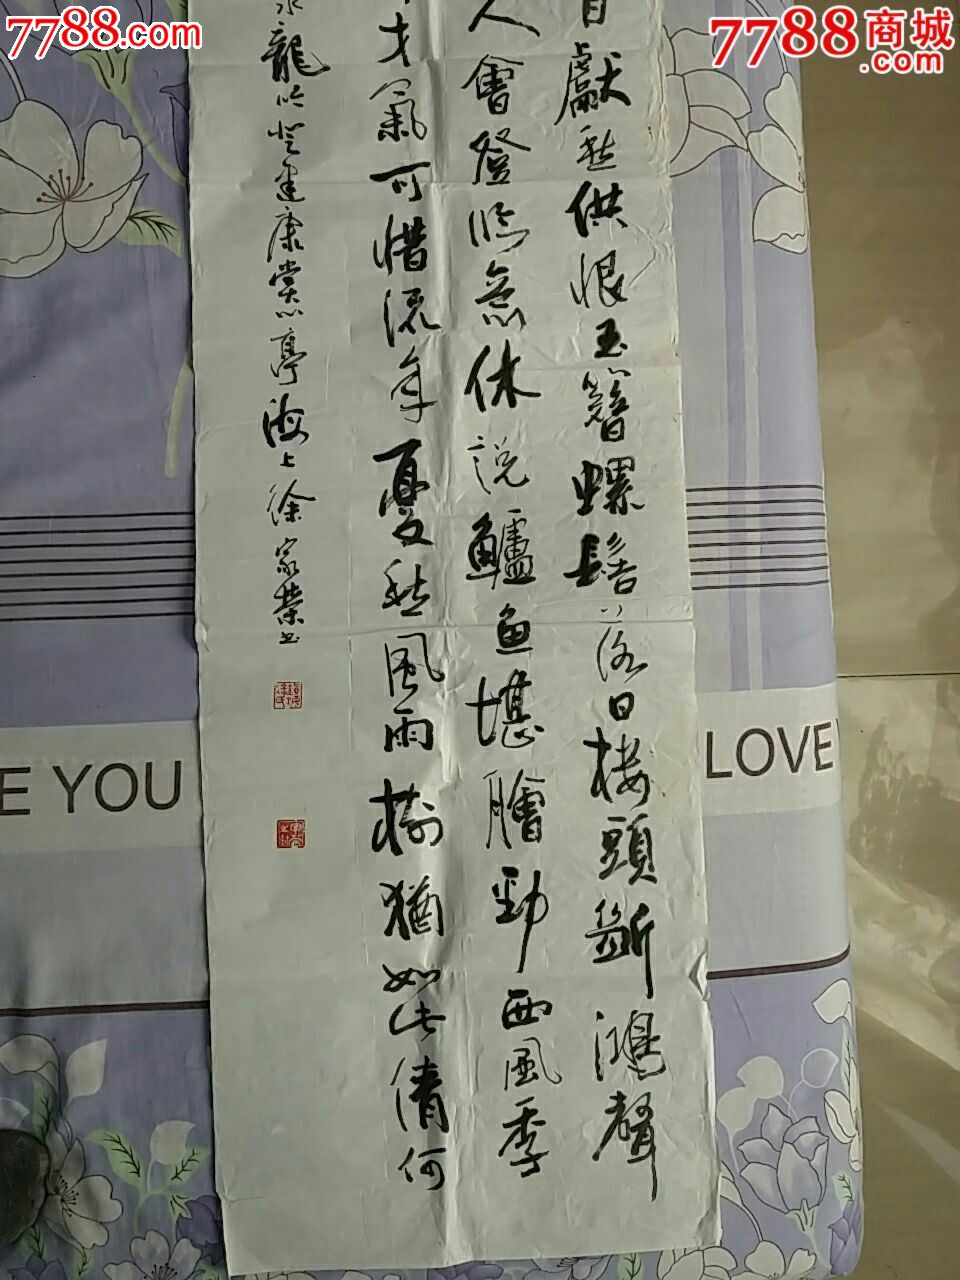 7788.com
7788商城
.com
目獻愁供恨玉簪螺髻落日樓頭斷鴻聲
人會登臨意休說鱸魚堪膾勁西風季
才氣可惜流年憂愁風雨樹猶如此倩何
水龍吟登建康賞心亭海上徐家榮書
E YOU
LOVE